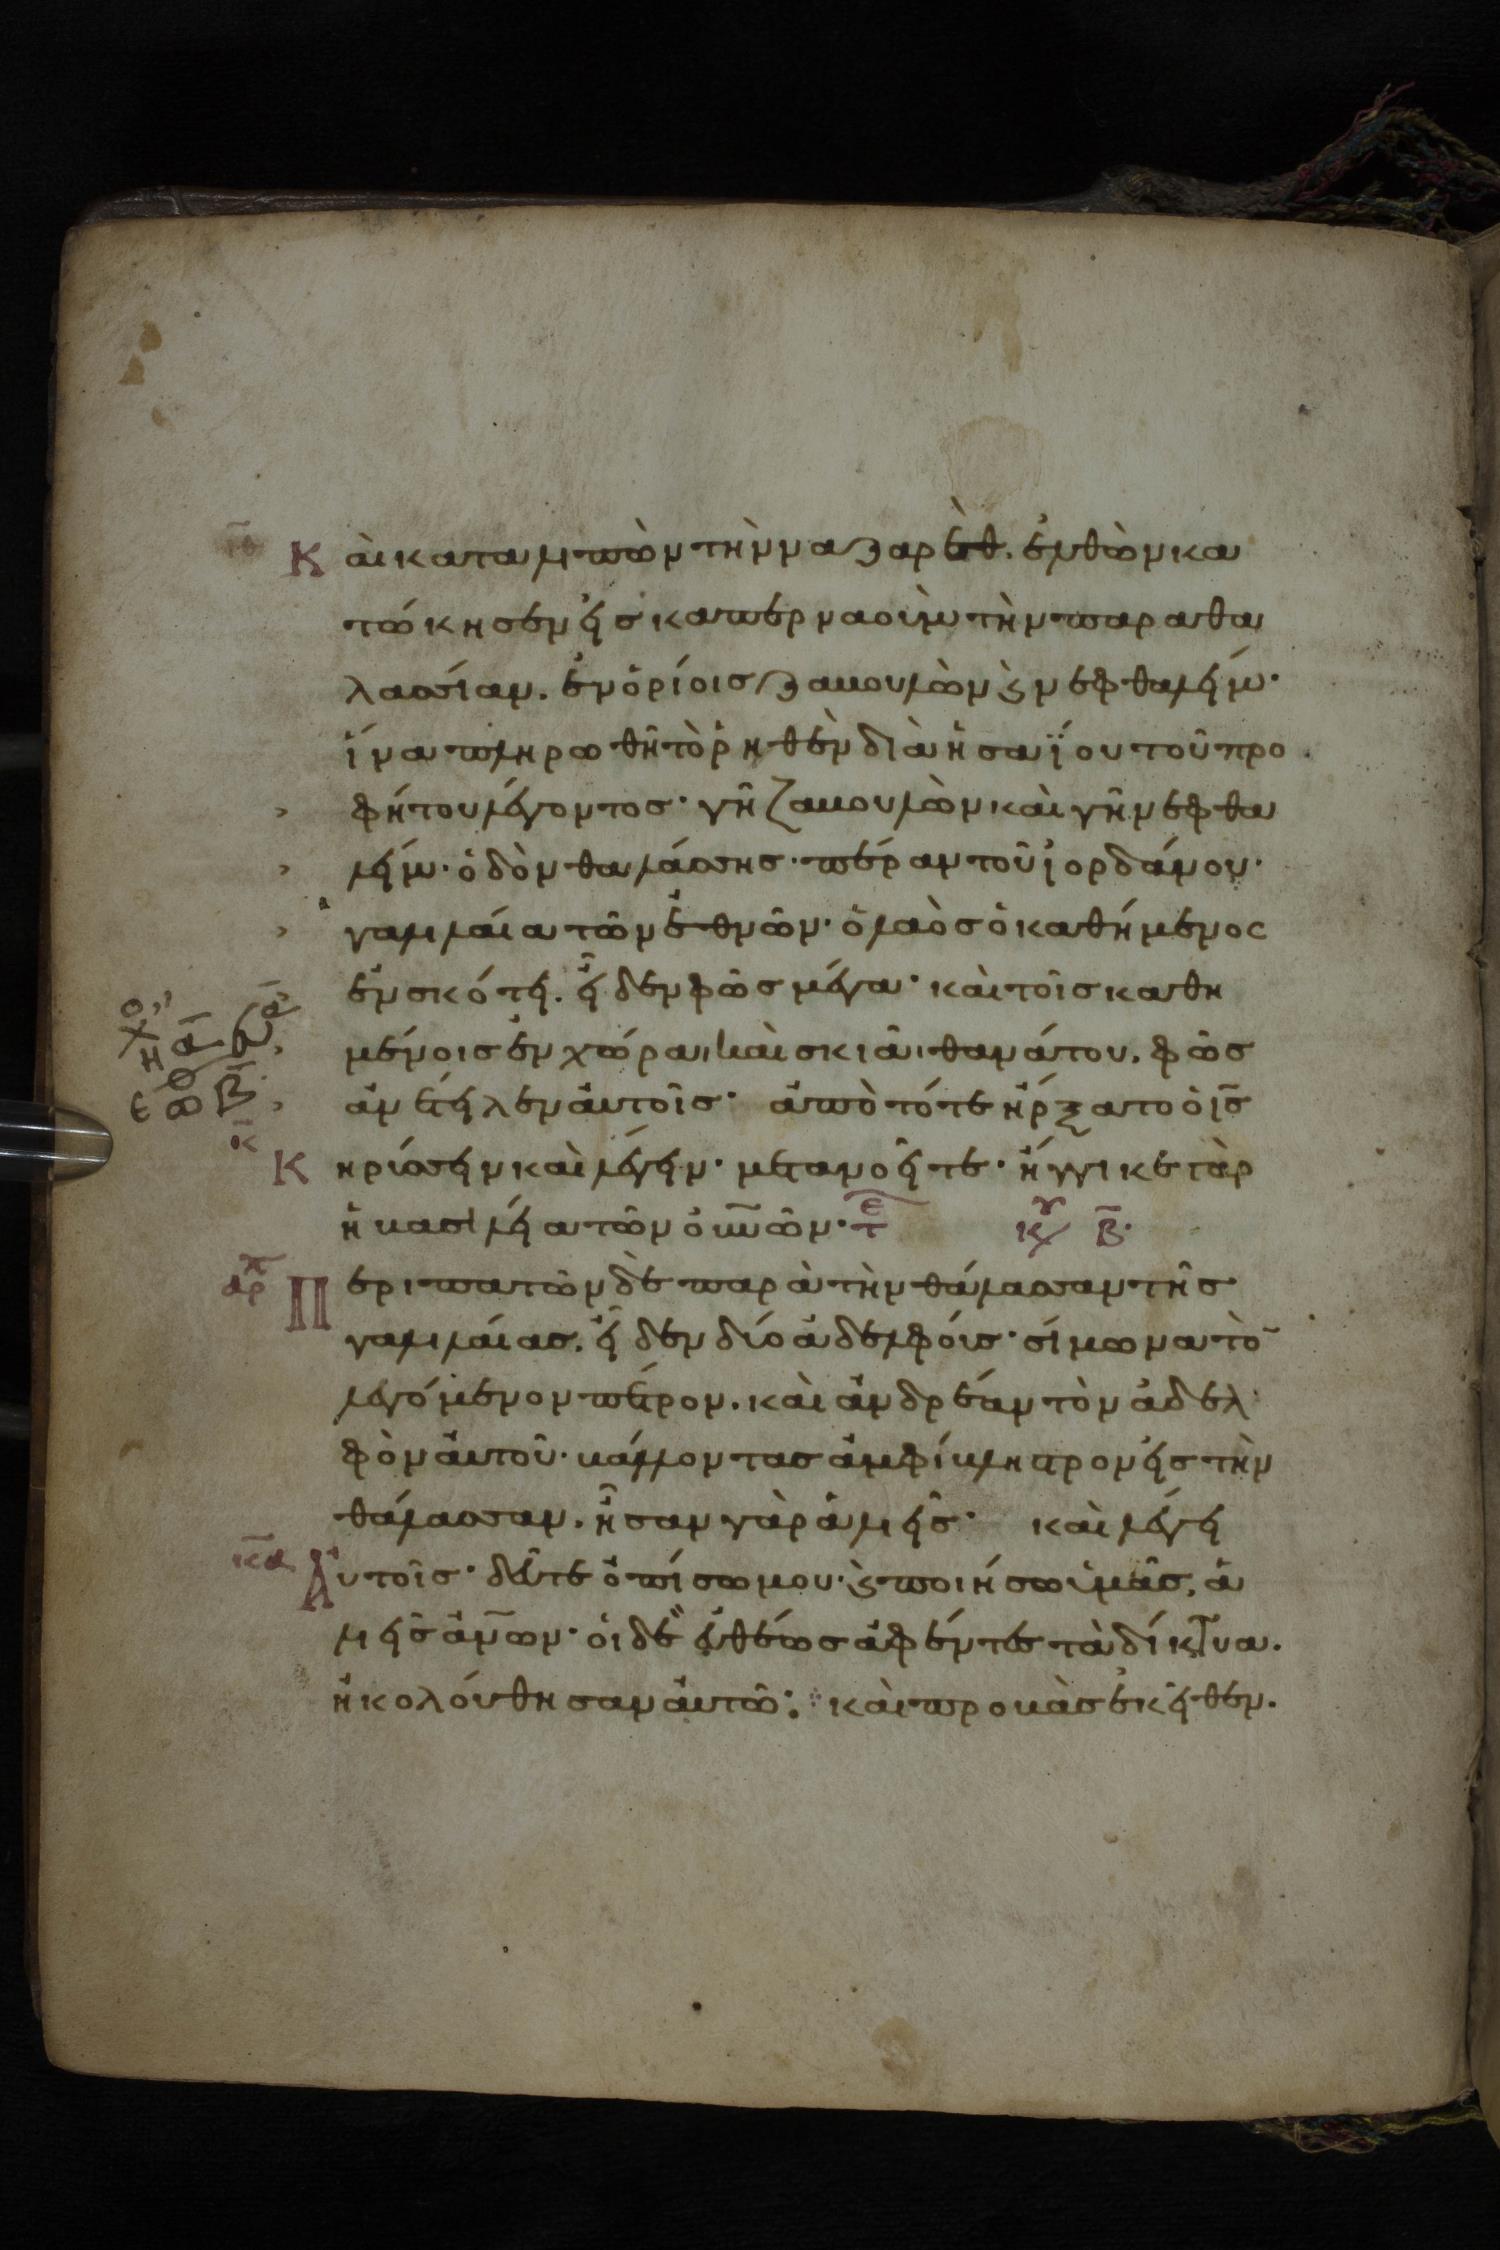 Κ ὰι καταλιπὼν τὴν ναζαρὲτ. ἐλθὼν κα
τώκησεν εἰς καπερναοὺμ τὴν παραθα
λασσίαν. ἐν ὁρίοις ζαβουλὼν ϗ νεφθαλείμ·
ἵνα πληρωθῆ τὸ ῥηθὲν διὰ ἡσαΐου τοῦ προ
φήτου λέγοντος· γῆ ζαβουλὼν καὶ γῆ νεφθα
λείμ· ὁδὸν θαλάσσης· πέραν τοῦ ἰορδάνου·
γαλιλαία τῶν ἐθνῶν· ὁ λαὸς ὁ καθήμενος
ἐν σκότει. εἶδεν φῶς μέγα· καὶ τοῖς καθη
μένοις ἐν χώρα, καὶ σκιᾶ, θανάτου. φῶς
ἀνέτειλεν ἀυτοῖς· ἀπὸ τότε ἤρξατο ὁ ι̅ς̅
Κ ηρύσσειν καὶ λέγειν· μετανοεῖτε· ἤγγικε γὰρ
ἡ βασιλεία τῶν ὀυ̅ν̅ῶν· τε
κυ β̅·
αρ Π εριπατῶν δὲ παρὰ τὴν θάλασσαν τῆς
γαλιλαίας. εἶδεν δύο ἀδελφούς· σίμωνα τὸ̅
λεγόμενον πέτρον. καὶ ἀνδρέαν τὸν ἀδελ
φὸν ἀυτοῦ· βάλλοντας ἀμφίβληστρον εἰς τὴν
θάλασσαν. ἦσαν γὰρ ἁλιεῖς· καὶ λέγει
κ̅α̅ Ἀ υτοῖς· δεῦτε ὀπίσω μου· ϗ ποιήσω ὑμᾶς, ἁ
λιεῖς ἀν̅ων· οἱ δὲ εὐθέως ἀφέντες τὰ δίκτυα.
ἠκολούθησαν ἀυτῶ: καὶ προβὰς ἐκεῖθεν.